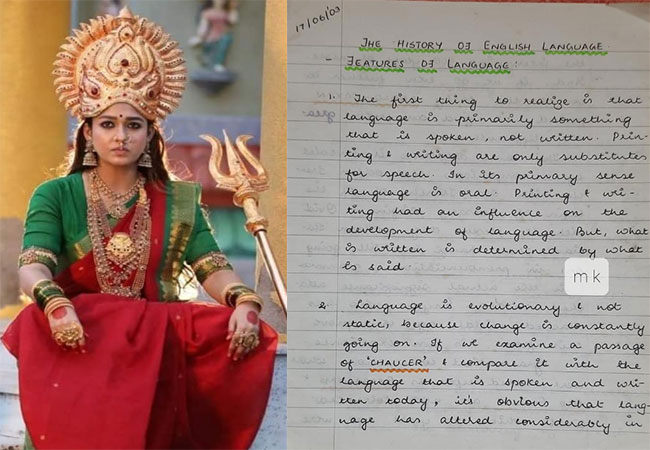 17/06/03
THE HISTORY OF ENGLISH LANGUAGE
- FEATURES OF LANGUAGE:
1. The first thing to realize is that
language is primarily something
that is spoken, not written. Prin-
ting & writing are only substitutes
for speech. In its primary sense
language is oral. Printing & wri-
ting had an influence on the
development of language. But, what
is written is determined by what
is said.
mk
2. Language is evolutionary & not
static, because change is constantly
going on. If we examine a passage
of 'CHAUCER' & compare it with the
language that is spoken and wri-
tten today, it's obvious that lang-
uage has altered considerably in